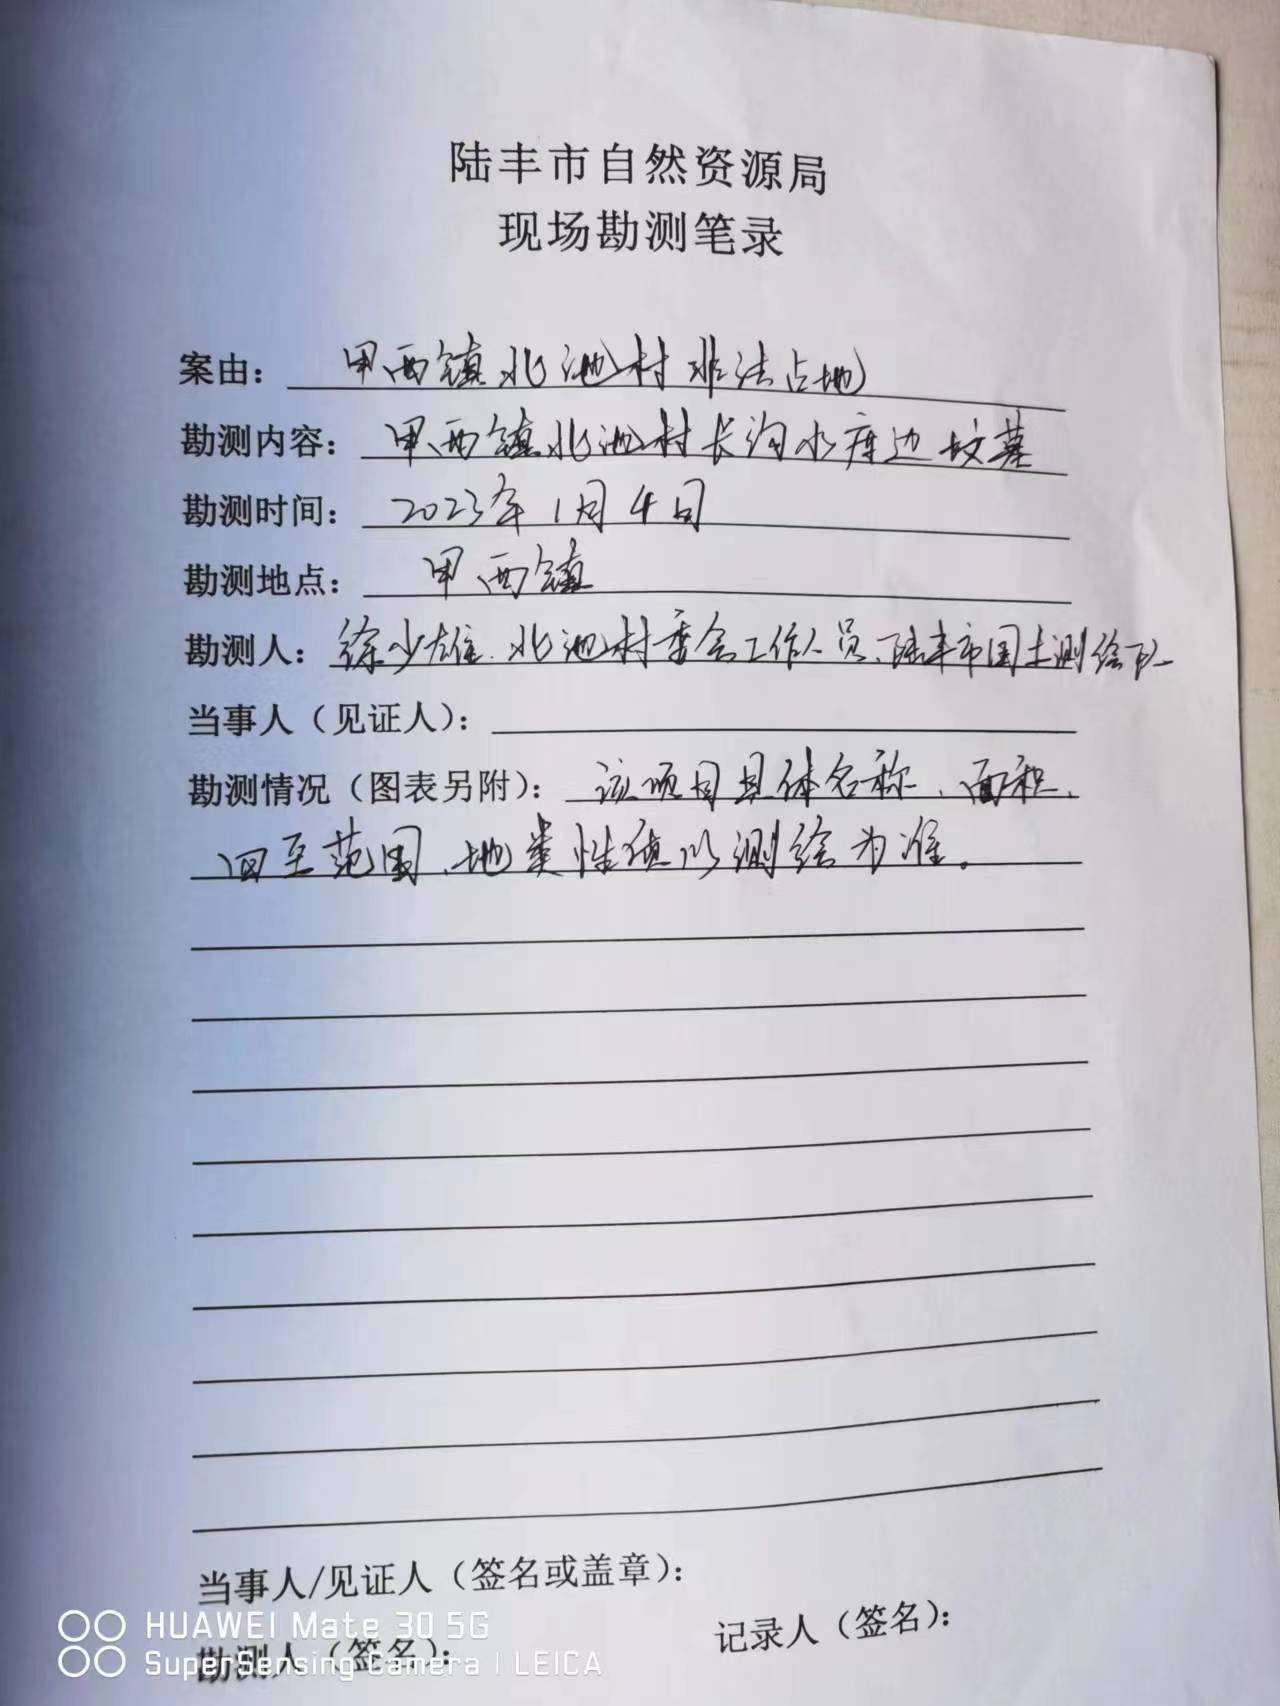 陆丰市自然资源局
现场勘测笔录
案由：甲西镇北池村非法占地
勘测内容：甲西镇北池村长沟水库边坟墓
勘测时间：2023年1月4日
勘测地点：甲西镇
勘测人：徐少雄、北池村委会工作人员、陆丰市国土测绘队
当事人（见证人）：
勘测情况（图表另附）：该项目具体名称、面积、
四至范围、地类性质以测绘为准。
当事人/见证人（签名或盖章）：
记录人（签名）：
勘测人（签名）：
HUAWEI Mate 30 5G
SuperSensing Camera | LEICA